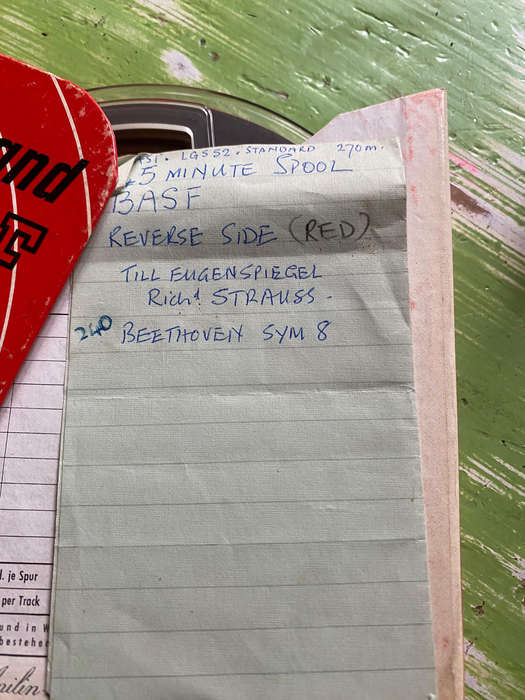 and
LGS52. STANDARD 270m.
5 MINUTE SPOOL
BASF
REVERSE SIDE (RED)
TILL EUGENSPIEGEL
Richd STRAUSS.
240 BEETHOVEN SYM 8
je Spur
per Track
und in W
bestehe